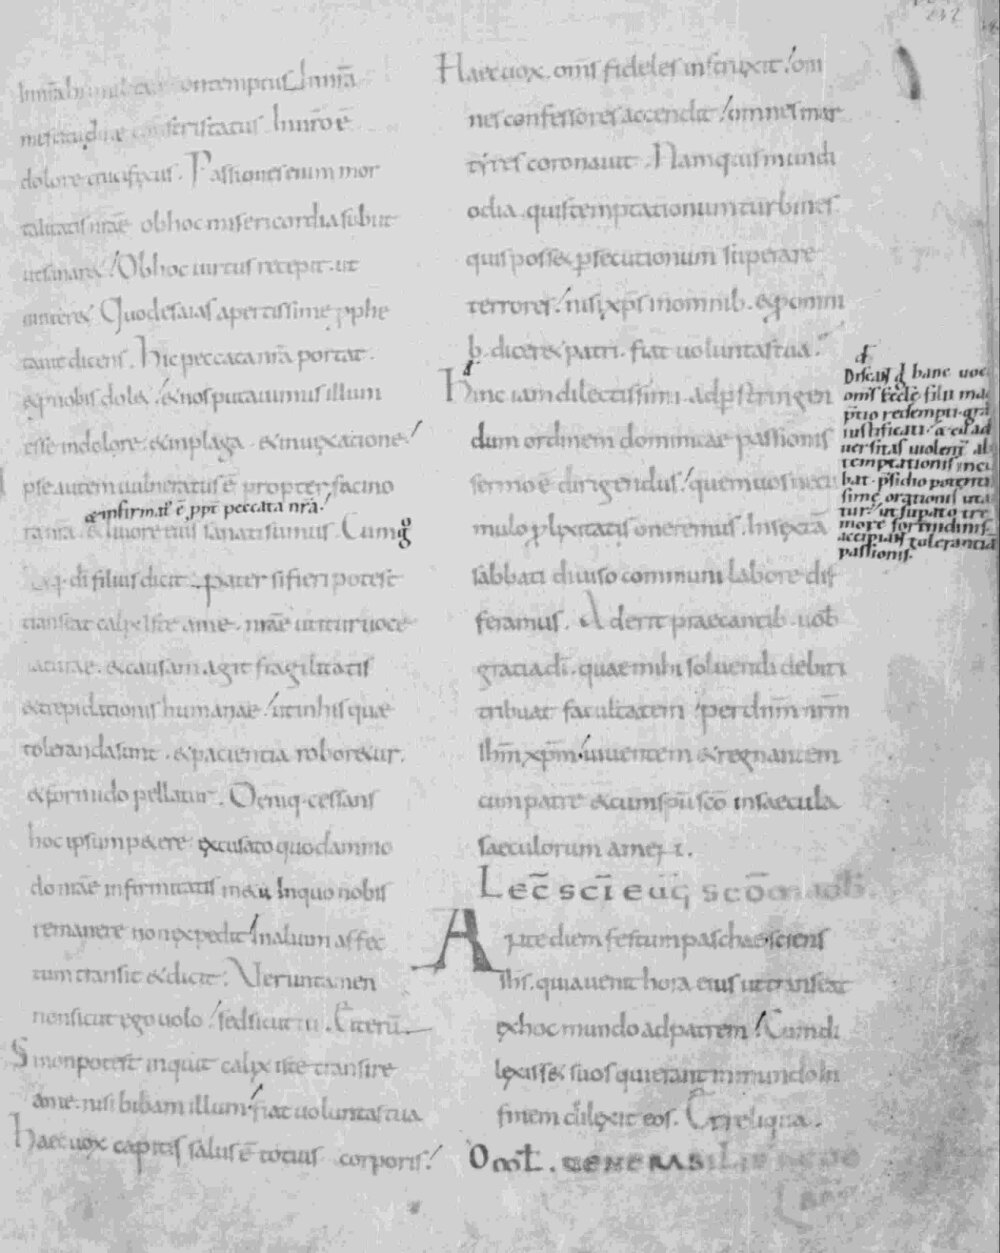 dolore crucifixus. Passiones enim mor
talitatis nr̄ae obhoc misericordia subiit
ut sanaret! Obhoc uirtus recepit. ut
uinceret Quod esaias apertissime ꝓphe
tauit dicens. Hic peccata nr̄a portat.
et ꝓ nobis dolet! et nos putauimus illum
esse in dolore. et in plaga. et in uexatione!
Ipse autem uulneratus ē propter facino
et infirmat' ē ꝓpt' peccata nr̄a!
ra nr̄a. et liuore eius sanati sumus. Cum g̊
itaq. dī filius dicit. pater si fieri potest
transeat calix iste a me. nr̄ae utitur uoce
naturae. et causam agit fragilitatis
et trepidationis humanae! ut in his quae
toleranda sunt. et paciencia roboretur.
et formido pellatur. Deniq. cessans
hoc ipsum petere excusato quodammo
do nr̄ae infirmitatis metu In quo nobis
remanere non expedit! In alium affec
tum transit et dicit: Veruntamen
non sicut ego uolo! sed sicut tu. Et iterū.
Si non potest inquit calix iste transire
a me. nisi bibam illum! fiat uoluntas tua
Haec uox capitis salus ē totius corporis!
Haec uox. om̄s fideles instruxit! om
nes confessores accendit! omnes mar
tyres coronauit. Nam quis mundi
odia. quis temptationum turbines
quis posset ꝑsecutionum superare
terrores! nisi xp̄s in omnib. et ꝓ omni
b. diceret patri. fiat uoluntas tua!
Hinc iam dilectissimi. ad ꝑstringen
dum ordinem dominicae passionis
sermo ē dirigendus! quem uos ne cu
mulo ꝓlixitatis oneremus! In quartā
sabbati diuiso communi labore dif
feramus. Aderit praecantib. uob̄
gratia dī. quae mihi soluendi debiti
tribuat facultatem! per dn̄m nr̄m
ihm̄ xpm̄! uiuentem et regnantem
cum patre et cum sp̄u sc̄o in saecula
saeculorum amen.
Lec̄ sc̄i eug̅ sc̄d̄m ioh̄
Ante diem festum paschae. sciens
ihs̄. quia uenit hora eius ut transeat
ex hoc mundo ad patrem! Cum di
lexisset suos qui erant in mundo In
finem dilexit eos. Et reliqua.
Discat g̊ hanc uoce
om̄s eccle filii ma
p̄tio redempti. gra
iustificati. et cū ad
uersitas uiolent' al
temptationis incu
bat. p̄sidio potenti
sime orationis uta
tur! ut supato tre
more formidinis
accipiat tolerantiā
passionis.